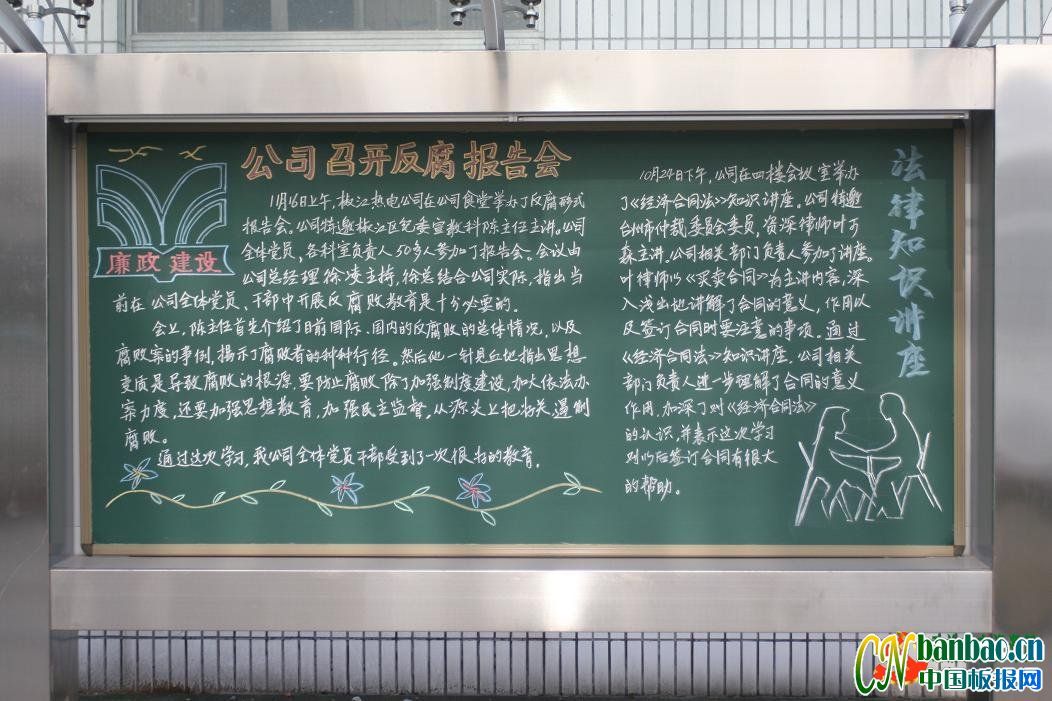 公司召开反腐报告会
廉政建设
11月16日上午,椒江热电公司在公司食堂举办了反腐形式
报告会。公司特邀椒江区纪委宣教科陈主任主讲。公司
全体党员,各科室负责人50多人参加了报告会。会议由
公司总经理徐凌主持,徐总结合公司实际,指出当
前在公司全体党员、干部中开展反腐败教育是十分必要的。
会上,陈主任首先介绍了目前国际、国内的反腐败的总体情况,以及
腐败案的事例,揭示了腐败者的种种行径。然后他一针见血地指出思想
变质是导致腐败的根源,要防止腐败除了加强制度建设,加大依法办
案力度,还要加强思想教育,加强民主监督,从源头上把关遏制
腐败。
通过这次学习,我公司全体党员干部受到了一次很好的教育。
法律知识讲座
10月24日下午,公司在四楼会议室举办
了《经济合同法》知识讲座。公司特邀
台州市仲裁委员会委员,资深律师叶万
森主讲。公司相关部门负责人参加了讲座。
叶律师以《买卖合同》为主讲内容,深
入浅出地讲解了合同的意义,作用以
及签订合同时要注意的事项。通过
《经济合同法》知识讲座,公司相关
部门负责人进一步理解了合同的意义
作用,加深了对《经济合同法》
的认识,并表示这次学习
对以后签订合同有很大
的帮助。
CNbanbao.cn
中国板报网